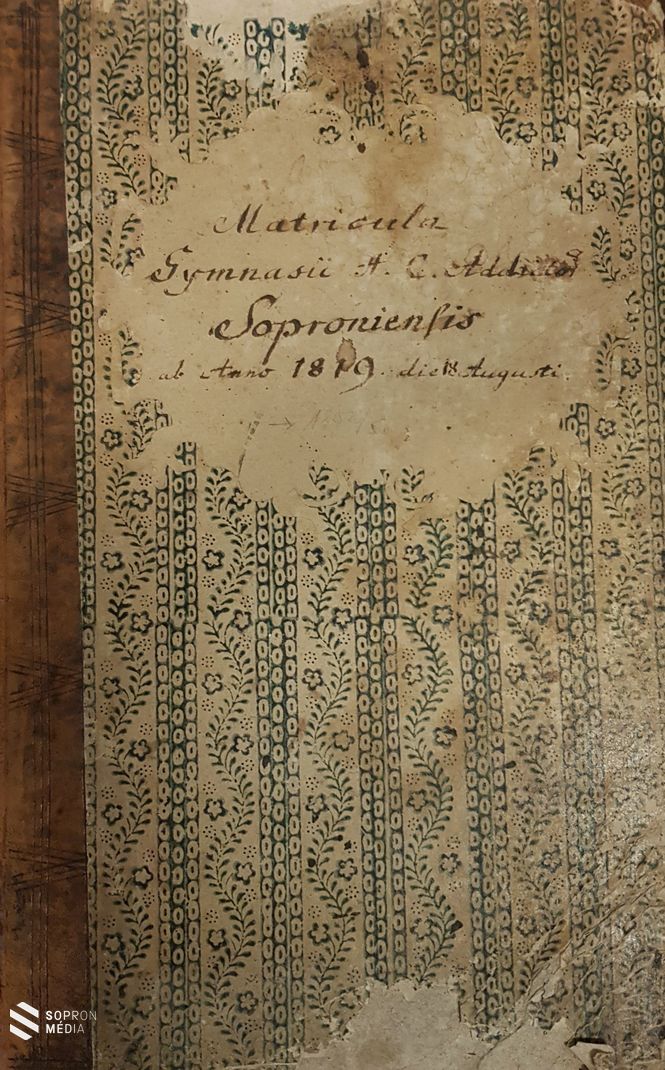 Matricula
Gymnasii A. C. Addictor
Soproniensis
ab Anno 1819 die 18 Augusti.
SOPRON
MÉDIA